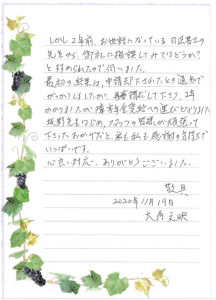 しかし2年前、お世話になっている司法書士の
先生から、御社に相談してみてはどうか?
と勧められたので伺いました。
最初の結果は、申請却下されたとの通知で
がっかりしましたが、再審請求して下さり、2年
かかりましたが障害年金受給への運びとなりました。
坂野先生はじめ、スタッフの皆様が頑張って
下さったおかげだと、弟も私も感謝の気持ちで
いっぱいです。
心良い対応、ありがとうございました。
敬具
2020年11月19日